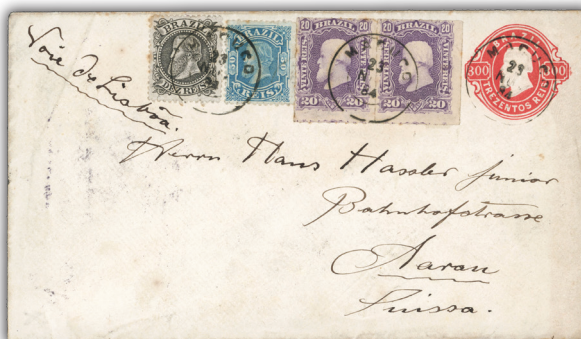 Voie de Lisboa.
BRAZIL
REIS
BRAZIL
50 50
REIS
20 BRAZIL 20
VINTE REIS
20 20
20 BRAZIL 20
VINTE REIS
20 20
23
84
300 300
TREZENTOS REIS
Herrn Hans Hassler junior
Bahnhofstrasse
Aarau
Suissa.